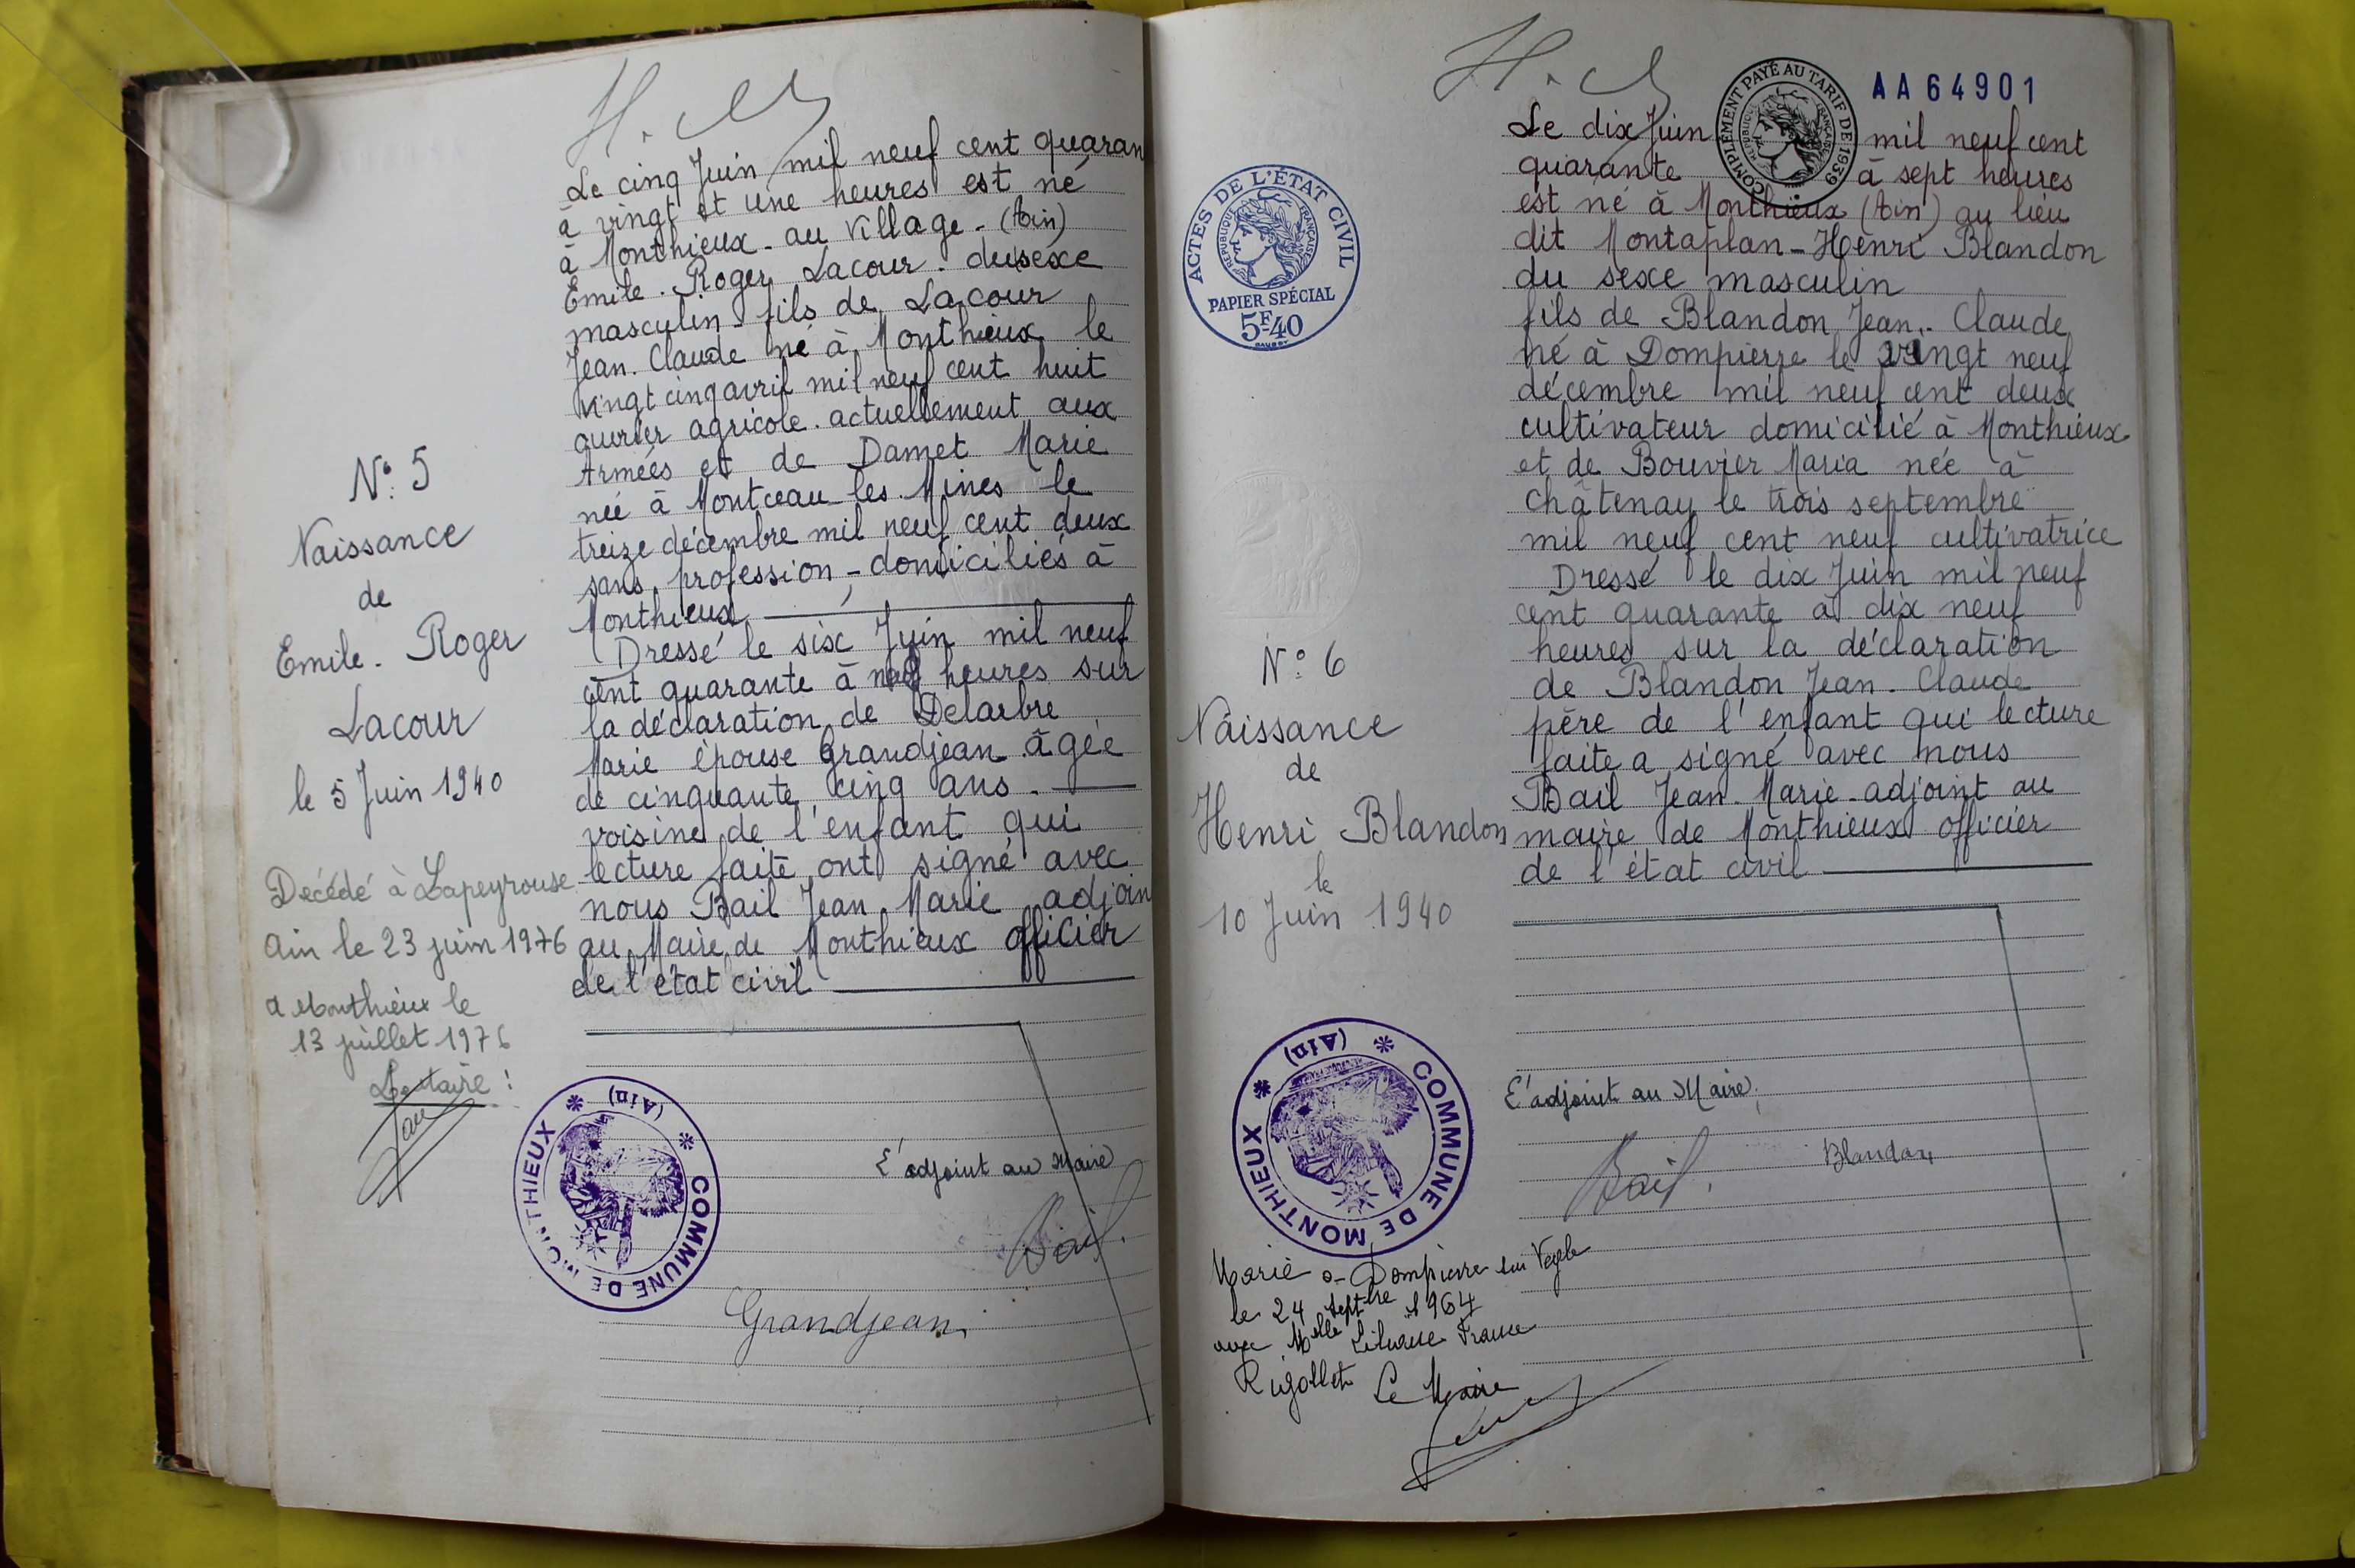 Le cinq Juin mil neuf cent quaran
à vingt et une heures est né
à Monthieux - au village - (Ain)
Emile - Roger Lacour - du sexe
masculin - fils de Lacour
Jean - Claude né à Monthieux le
vingt cinq avril mil neuf cent huit
ouvrier agricole - actuellement aux
Armées et de Damet Marie
née à Montceau les Mines le
treize décembre mil neuf cent deux
sans profession - domiciliés à
Monthieux
Dressé le six Juin mil neuf
cent quarante à heures sur
la déclaration de Delarbre
Marie épouse Grandjean âgée
de cinquante cinq ans -
voisine de l'enfant qui
lecture faite ont signé avec
nous Bail Jean Marie adjoin
au Maire de Monthieux officier
de l'état civil
N° 5
Naissance
de
Emile - Roger
Lacour
le 5 Juin 1940
Décédé à Lapeyrouse
Ain le 23 juin 1976
à Monthieux le
13 juillet 1976
Le Maire :
COMMUNE DE MONTHIEUX
(Ain)
L'adjoint au Maire
Bail.
Grandjean
AA64901
COMPLÉMENT PAYÉ AU TARIF DE 1939
REPUBLIQUE FRANÇAISE
Le dix Juin mil neuf cent
quarante à sept heures
est né à Monthieux (Ain) au lieu
dit Montaplan - Henri Blandon
du sexe masculin
fils de Blandon Jean - Claude
né à Dompierre le vingt neuf
décembre mil neuf cent deux
cultivateur domicilié à Monthieux
et de Bouvier Maria née à
Châtenay le trois septembre
mil neuf cent neuf cultivatrice
Dressé le dix Juin mil neuf
cent quarante à dix neuf
heures sur la déclaration
de Blandon Jean - Claude
père de l'enfant qui lecture
faite a signé avec nous
Bail Jean - Marie - adjoint au
maire de Monthieux officier
de l'état civil
ACTES DE L'ÉTAT CIVIL
REPUBLIQUE FRANÇAISE
PAPIER SPÉCIAL
5F40
N° 6
Naissance
de
Henri Blandon
le
10 Juin 1940
COMMUNE DE MONTHIEUX
(Ain)
L'adjoint au Maire,
Bail. Blandon
Marié à Dompierre sur Veyle
le 24 septbre 1964
avec Melle Liliane France
Rigollet Le Maire